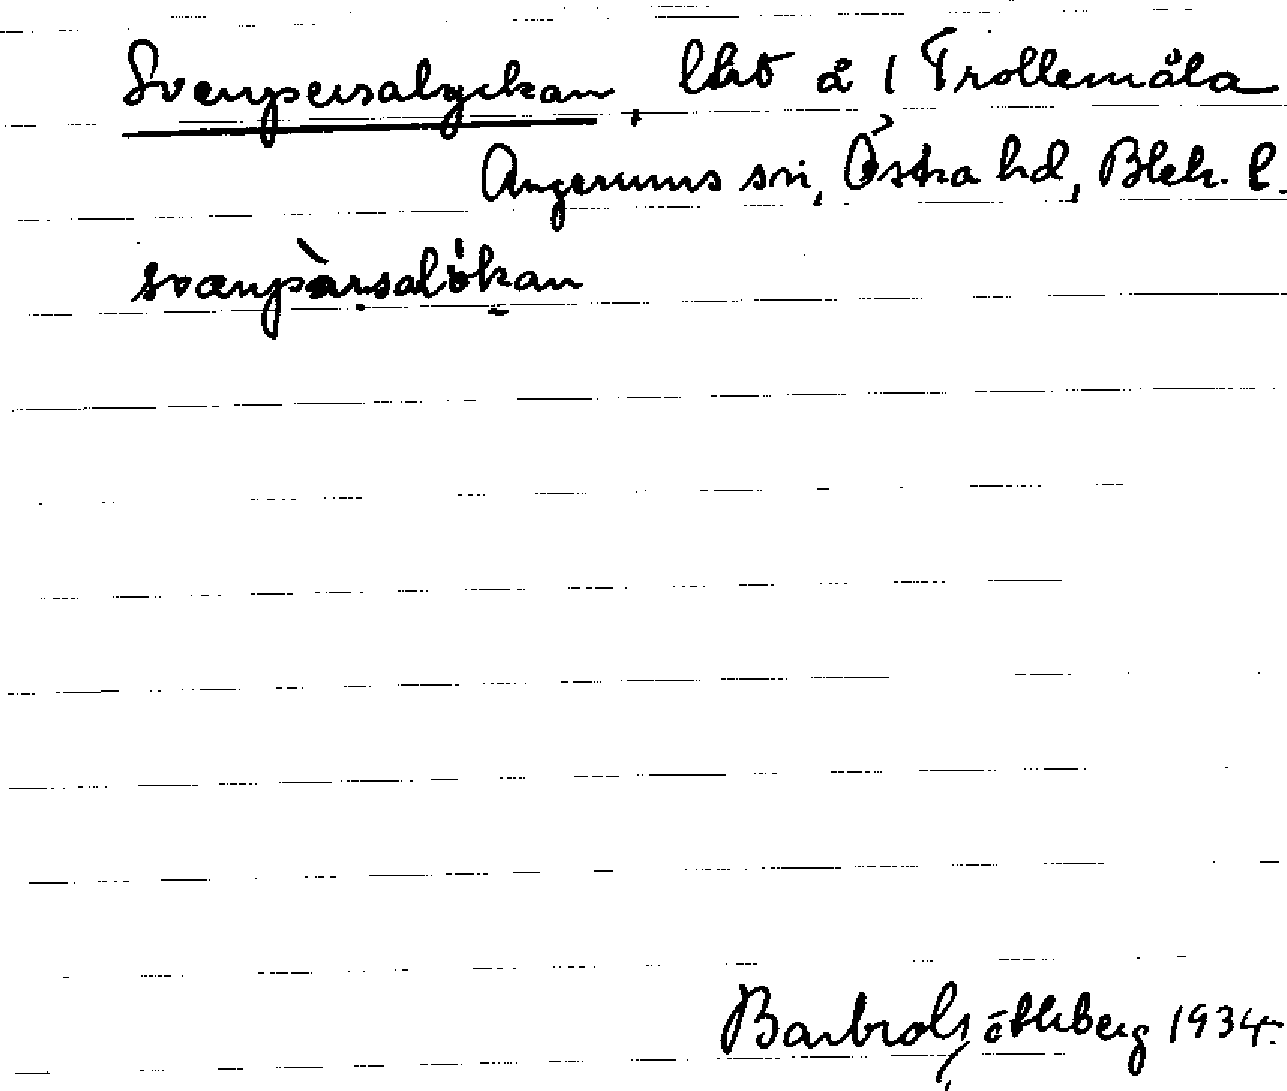 Svenpersalyckan, lkö å 1 Trollemåla
Augerums sn, Östra hd, Blek. l.
svænpàrsalỏkan
Barbro Götleberg 1934.